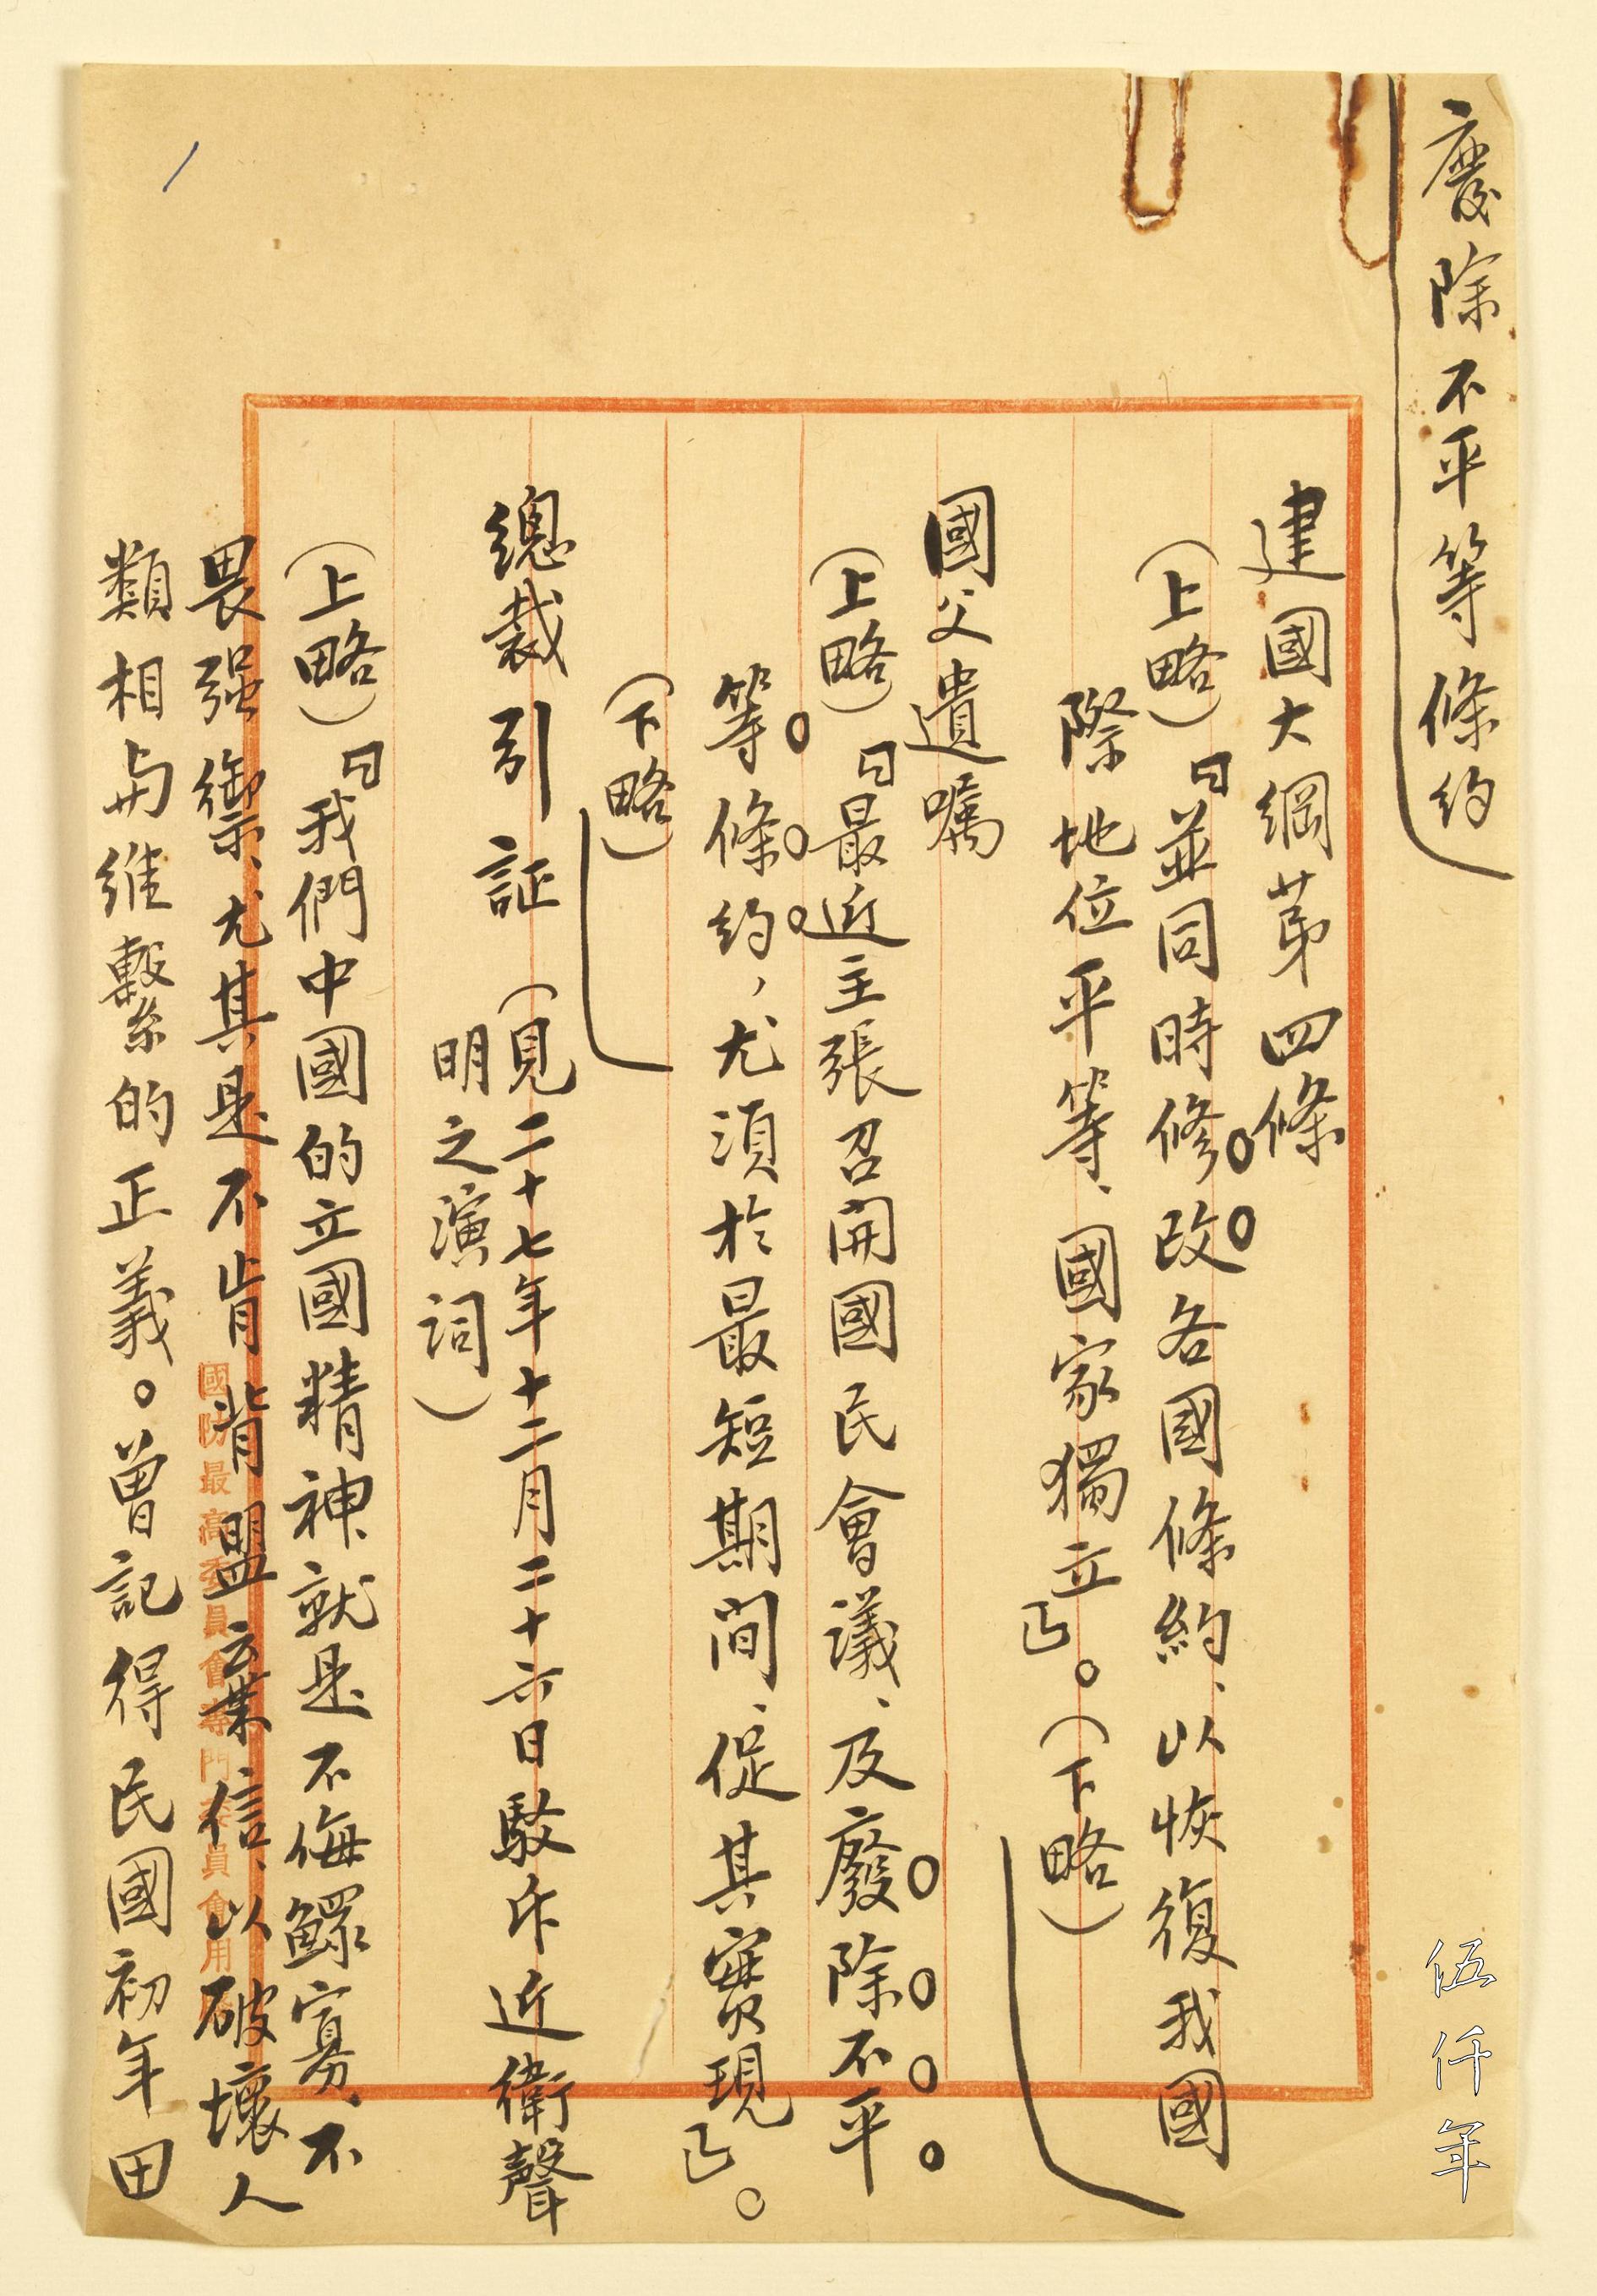 廢除不平等條約
建國大綱苐四條
(上略)「並同時修改各國條約、以恢復我國
際地位平等、國家獨立」。(下略)
國父遺囑
(上略)「最近主張召開國民會議、及廢除不平
等條約,尤須於最短期间、促其實現」。
(下略)
總裁引証(見二十七年十二月二十六日駁斥近衛聲
明之演詞)
(上略)「我們中國的立國精神、就是不侮鰥寡、不
畏强禦、尤其是不肯背盟棄信、以破壞人
類相与維繫的正義。曾記得民國初年田
國防最高委員會專門委員會用
伍仟年